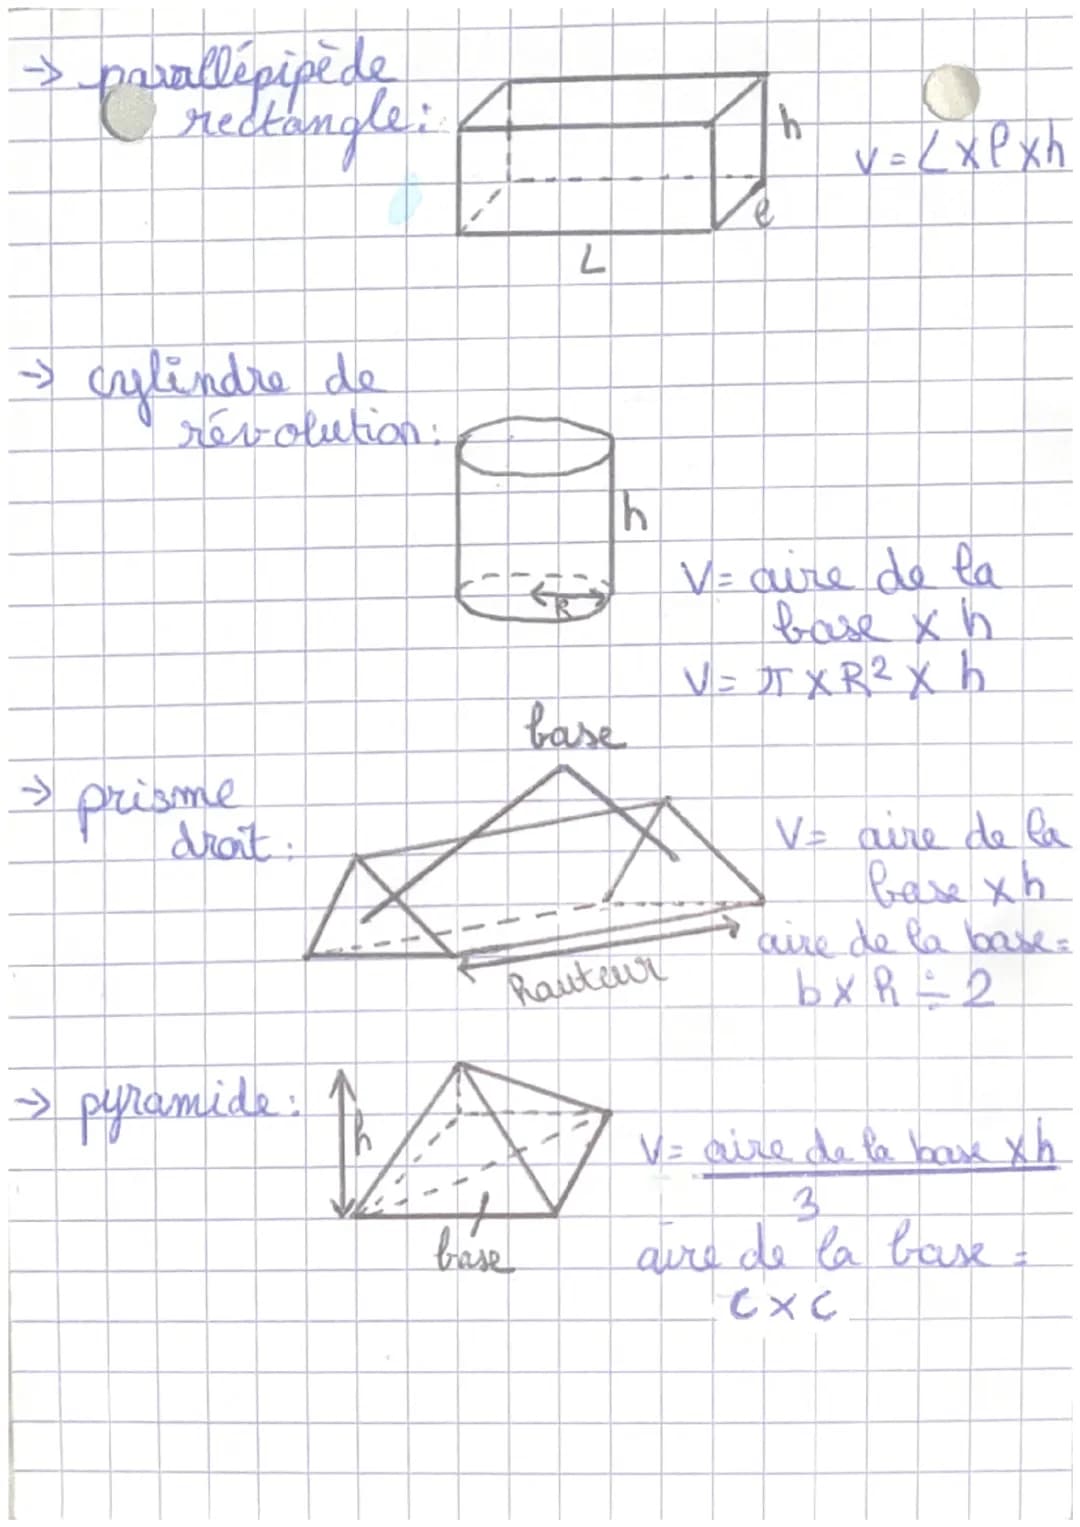 → parallépipède
rectangle:
h
V = L x l x h
l
L
→ cylindre de
révolution:
h
R
V= aire de la
base x h
V= π x R² x h
base
→ prisme
droit:
V= aire de la
base x h
aire de la base=
b x h ÷ 2
hauteur
→ pyramide:
h
V= aire de la base x h
3
base
aire de la base =
c x c